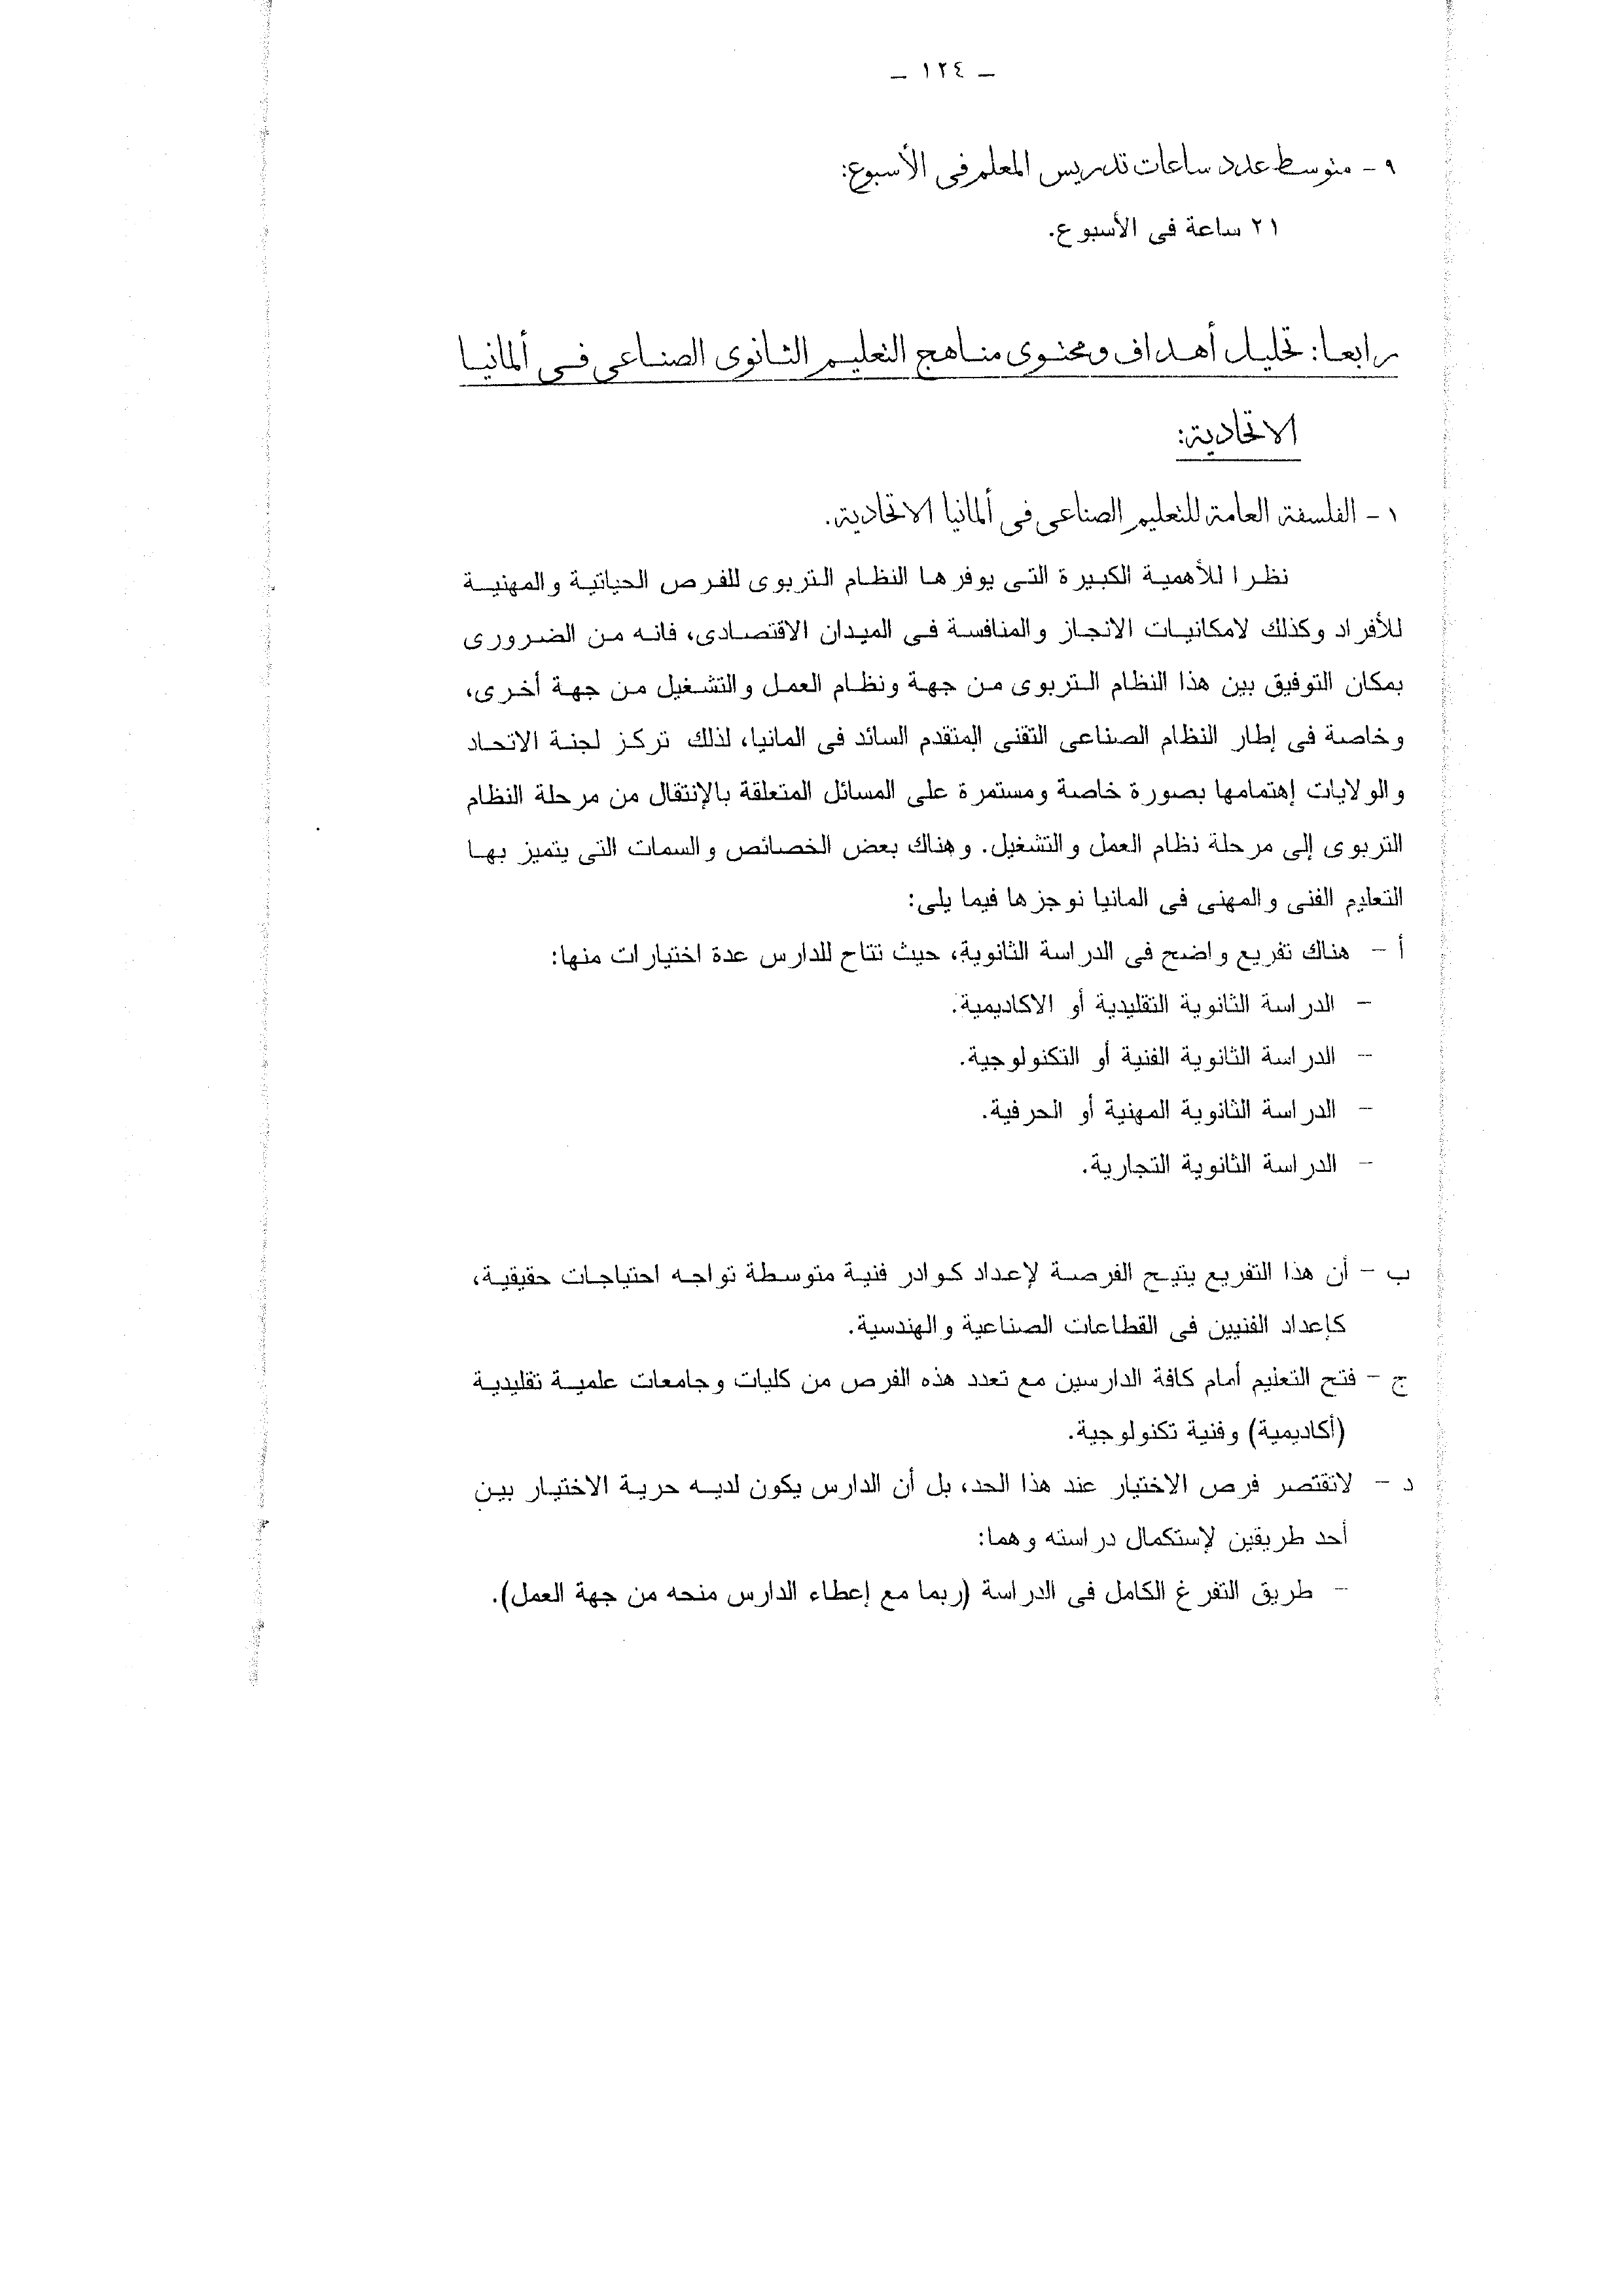 – ١٢٤ –
٩ - متوسط عدد ساعات تدريس المعلم فى الأسبوع:
٢١ ساعة فى الأسبوع.
رابعا: تحليل أهداف ومحتوى مناهج التعليم الثانوى الصناعى فى ألمانيا
الاتحادية:
١ - الفلسفة العامة للتعليم الصناعى فى ألمانيا الاتحادية.
نظرا للأهمية الكبيرة التى يوفرها النظام التربوى للفرص الحياتية والمهنية
للأفراد وكذلك لامكانيات الانجاز والمنافسة فى الميدان الاقتصادى، فانه من الضرورى
بمكان التوفيق بين هذا النظام التربوى من جهة ونظام العمل والتشغيل من جهة أخرى،
وخاصة فى إطار النظام الصناعى التقنى المتقدم السائد فى المانيا، لذلك تركز لجنة الاتحاد
والولايات إهتمامها بصورة خاصة ومستمرة على المسائل المتعلقة بالإنتقال من مرحلة النظام
التربوى إلى مرحلة نظام العمل والتشغيل. وهناك بعض الخصائص والسمات التى يتميز بها
التعليم الفنى والمهنى فى المانيا نوجزها فيما يلى:
أ - هناك تفريع واضح فى الدراسة الثانوية، حيث تتاح للدارس عدة اختيارات منها:
- الدراسة الثانوية التقليدية أو الاكاديمية.
- الدراسة الثانوية الفنية أو التكنولوجية.
- الدراسة الثانوية المهنية أو الحرفية.
- الدراسة الثانوية التجارية.
ب - أن هذا التفريع يتيح الفرصة لإعداد كوادر فنية متوسطة تواجه احتياجات حقيقية،
كإعداد الفنيين فى القطاعات الصناعية والهندسية.
ج - فتح التعليم أمام كافة الدارسين مع تعدد هذه الفرص من كليات وجامعات علمية تقليدية
(أكاديمية) وفنية تكنولوجية.
د - لاتقتصر فرص الاختيار عند هذا الحد، بل أن الدارس يكون لديه حرية الاختيار بين
أحد طريقين لإستكمال دراسته وهما:
- طريق التفرغ الكامل فى الدراسة (ربما مع إعطاء الدارس منحه من جهة العمل).